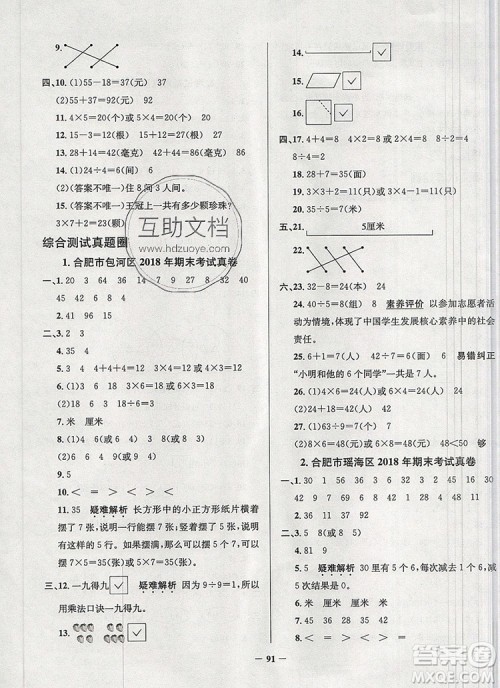 9.
四、10.(1)55－18＝37(元) 37
(2)55＋37＝92(元) 92
11.4×5＝20(或5×4＝20)
12.15－3＝12(根) 12＋15＝27(根)
13.28＋14＝42(毫克) 42＋44＝86(毫克)
14.(1)24÷6＝4(间) 4
(2)(答案不唯一)住8间3人间。
15.(答案不唯一)王冠上一共有多少颗珍珠?
3×7＋2＝23(颗)
综合测试真题圈
1.合肥市包河区2018年期末考试真卷
一、1.20 3 64 36 9 14 36 36 27
2.41 96 15
二、3.35 4
4.2 4 8
5.3 4 4＋4＋4＝12 3×4＝12(或4×3＝12)
6.(1)3 6 3×6＝18(或6×3＝18)
(2)18 3 6 18÷3＝6
7.米 厘米
8.(1)4 6 9(或6 4 9)
(2)6 6 3 4 9(或6 6 4 3 9)
9.5
10.＜ ＞ ＝ ＝ ＞ ＜
11.35 疑难解析 长方形中的小正方形纸片横着
摆了7张,竖着摆了5张,可以看作每行摆了7张,
这样的摆了5行。用乘法解决5个7,可以列式
7×5＝35(张)或5×7＝35(张)。
三、12.一九得九 ✓ 疑难解析 因为9÷9＝1,所以
用乘法口诀一九得九。
13. ✓
14. ✓
15. ✓
16. ✓
四、17.4＋4＝8 4×2＝8(或2×4＝8)
18.28＋7＝35
19.32÷8＝4
20.15÷3＝5(或15÷5＝3)
五、21. 5厘米
22.
六、23.32－8＝24(元) 24
24.40÷5＝8(组) 8 素养评价 以参加志愿者活
动为情境,体现了中国学生发展核心素养中的社会
责任。
25.6＋1＝7(人) 6×7＝42(个) 42 易错纠正
“小明和他的6个同学”一共是7人。
26.(1)6×4＝24(人)(或4×6＝24(人)) 24
27.(1)63÷9＝7(元) 7
(2)8×6＝48(元)(或6×8＝48(元)) 48＜50 够
2.合肥市瑶海区2018年期末考试真卷
一、1.30 32 45 8 100 17 49 42 9
2.36 28 11 37
二、3.三六十八 18 6 3
4.81 9 9
5.5 疑难解析 30里有5个6,每次减去1个6,减
去5次结果是0。
6.米 厘米 厘米 米
7.6 3(或3 6)
8.＜ ＝ ＞ ＝ ＞ ＜
— 91 —
互助文档
www.hdzuoye.com
答案圈
MXQE.COM